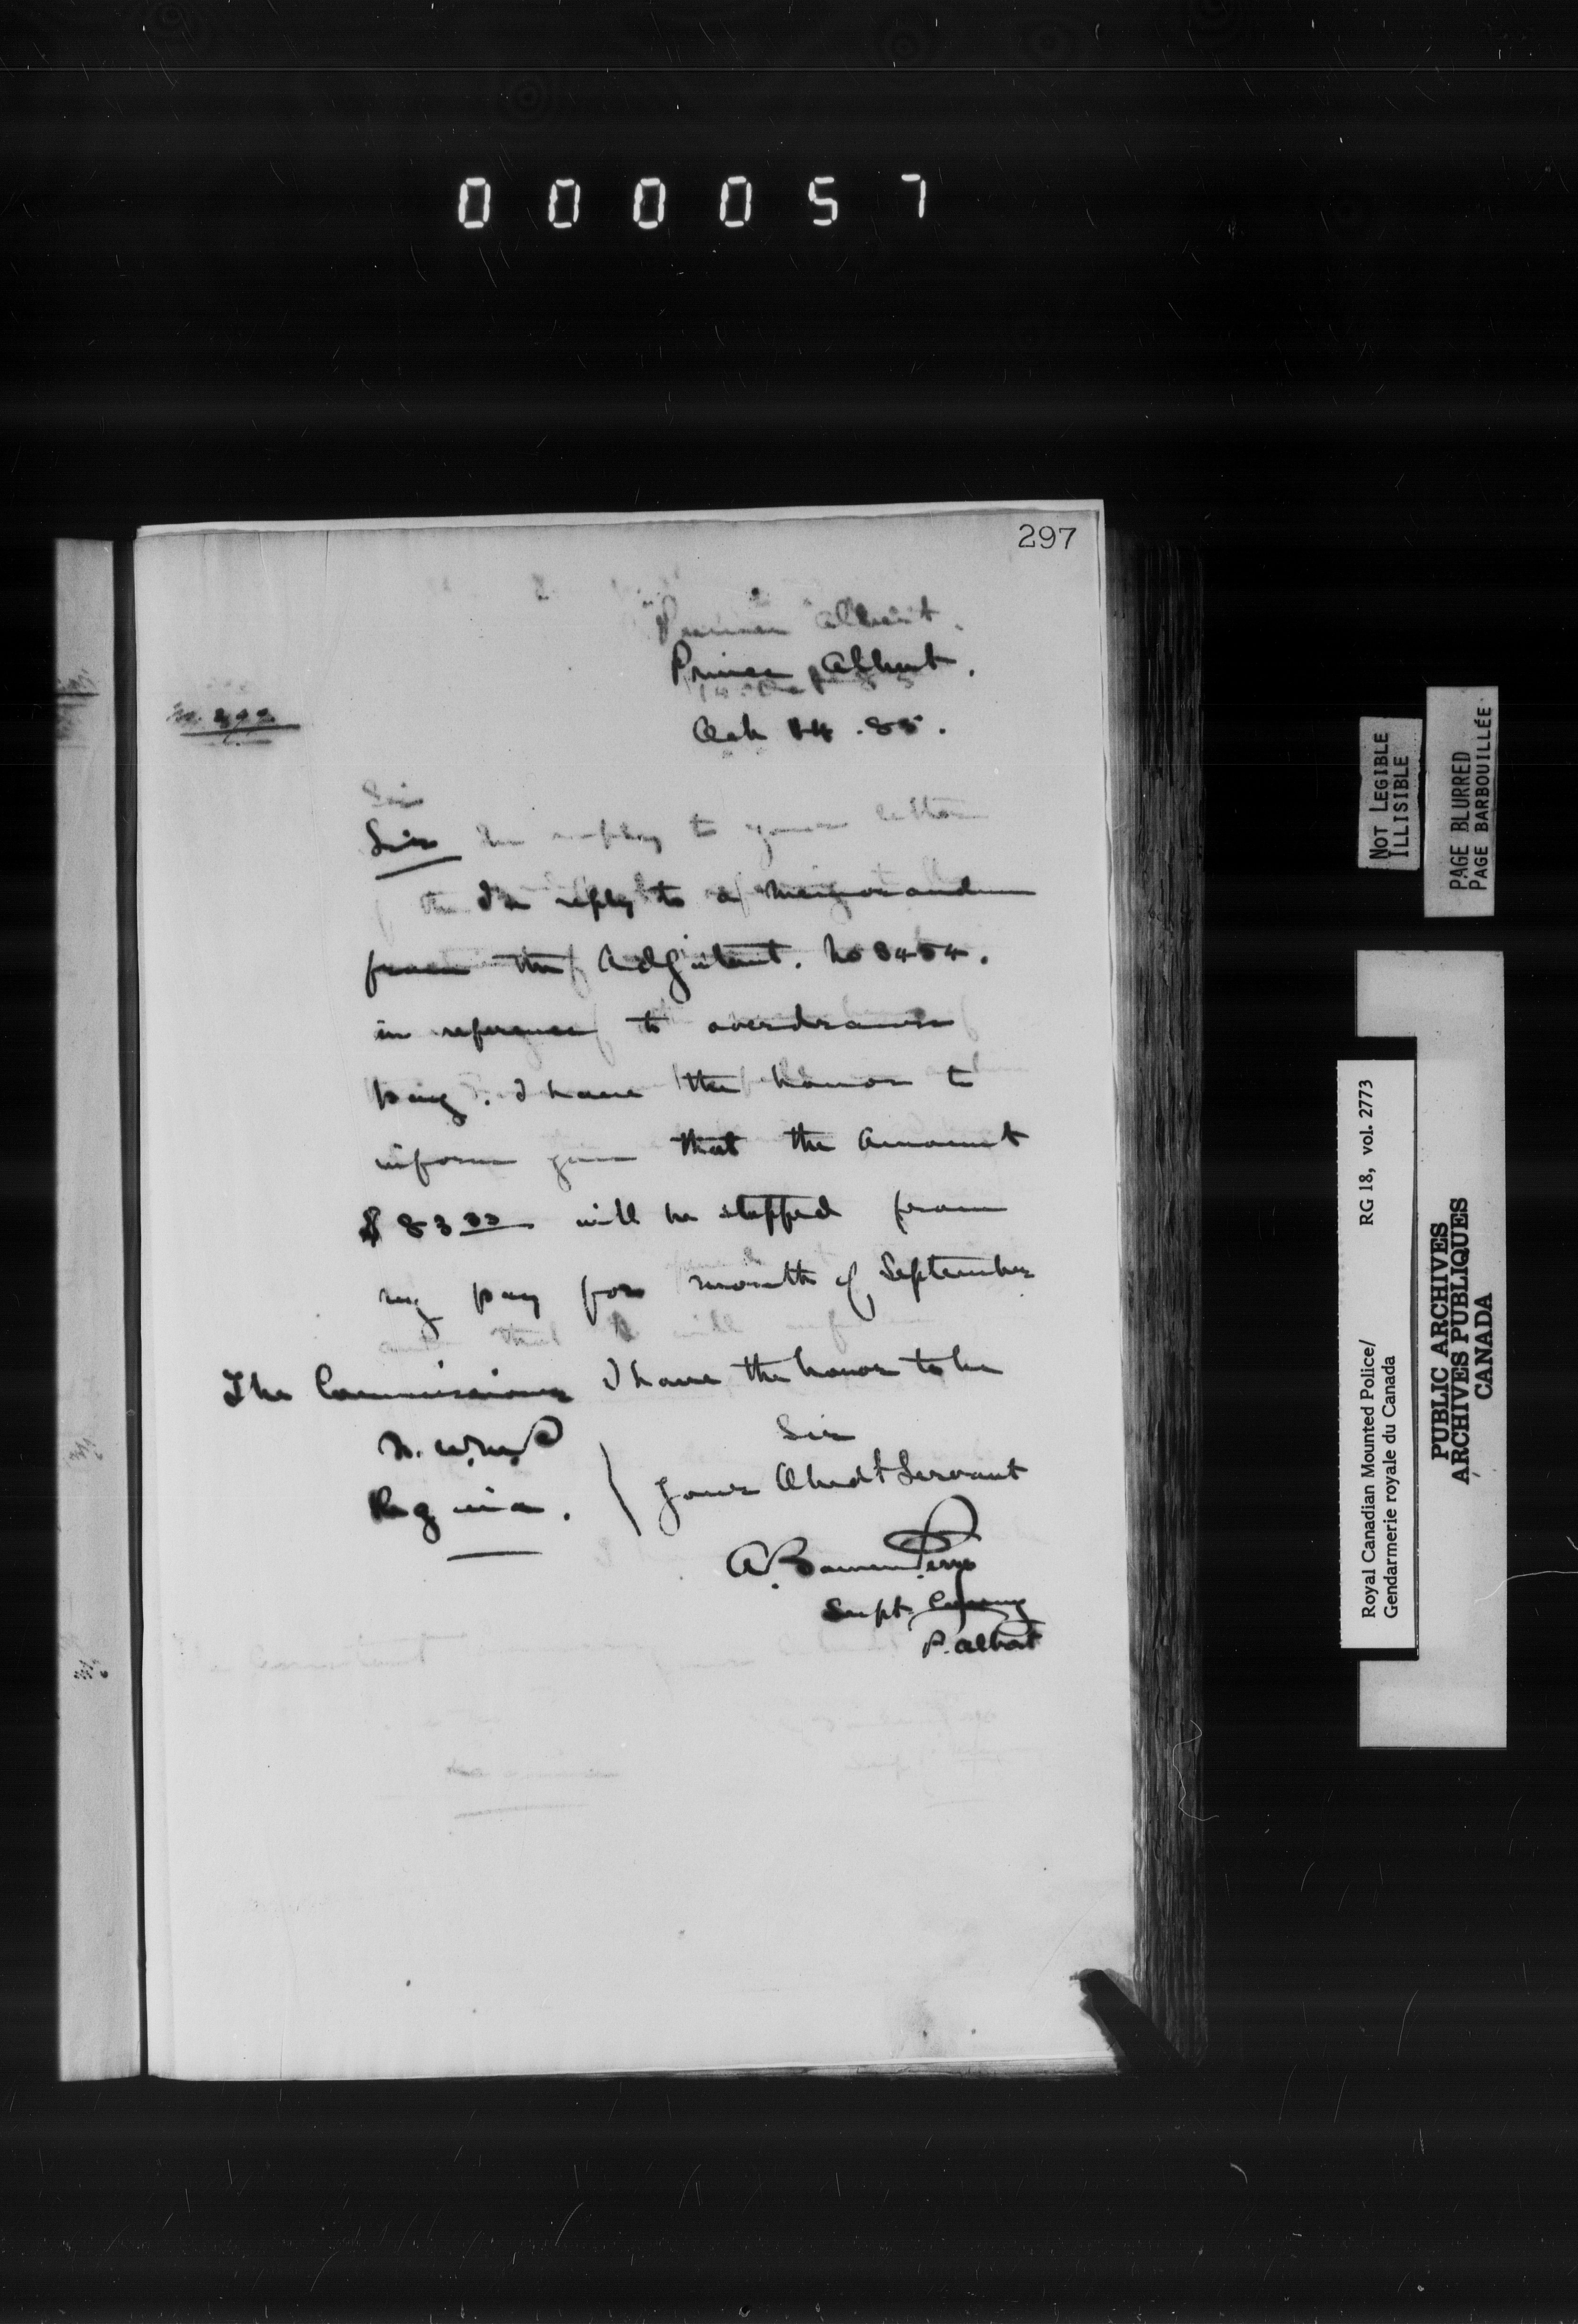 000057
297
Prince Albert.
Oct 14. 85.
Sir
In reply to a memorandum
from the Adjutant. No 8454.
in reference to overdrawn
pay. I have the honor to
inform you that the amount
$83.33 will be stopped from
my pay for month of September
I have the honor to be
Sir
Your Obedt Servant
A. Bowen Perry
Supt. Comg
P. Albert
The Commissioner
N.W.M.P
Regina.
NOT LEGIBLE
ILLISIBLE
PAGE BLURRED
PAGE BARBOUILLÉE
Royal Canadian Mounted Police/ RG 18, vol. 2773
Gendarmerie royale du Canada
PUBLIC ARCHIVES
ARCHIVES PUBLIQUES
CANADA